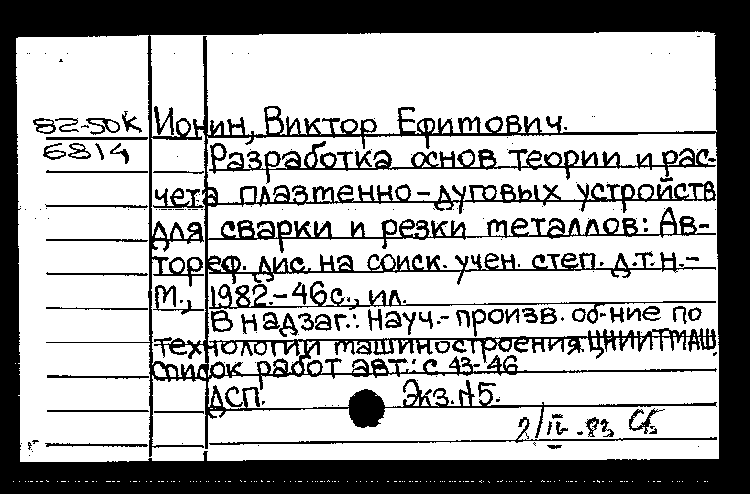 82-50к
6814
Ионин, Виктор Ефимович.
Разработка основ теории и рас-
чета плазменно-дуговых устройств
для сварки и резки металлов: Ав-
тореф. дис. на соиск. учен. степ. д.т.н.-
М., 1982.-46с., ил.
В надзаг.: Науч.-произв. об-ние по
технологии машиностроения ЦНИИТМАШ
Список работ авт.: с. 43-46
ДСП. Экз. №5.
2/IV-83 СБ